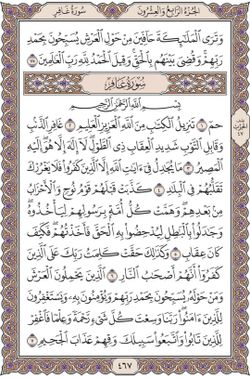 سُورَةُ غَافِرٍ الجُزْءُ الرَّابِعُ وَالعِشْرُونَ
وَتَرَى ٱلْمَلَٰٓئِكَةَ حَآفِّينَ مِنْ حَوْلِ ٱلْعَرْشِ يُسَبِّحُونَ بِحَمْدِ
رَبِّهِمْ وَقُضِىَ بَيْنَهُم بِٱلْحَقِّ وَقِيلَ ٱلْحَمْدُ لِلَّهِ رَبِّ ٱلْعَٰلَمِينَ ٧٥
سُورَةُ غَافِرٍ
بِسْمِ ٱللَّهِ ٱلرَّحْمَٰنِ ٱلرَّحِيمِ
حمٓ ١ تَنزِيلُ ٱلْكِتَٰبِ مِنَ ٱللَّهِ ٱلْعَزِيزِ ٱلْعَلِيمِ ٢ غَافِرِ ٱلذَّنۢبِ
وَقَابِلِ ٱلتَّوْبِ شَدِيدِ ٱلْعِقَابِ ذِى ٱلطَّوْلِ لَآ إِلَٰهَ إِلَّا هُوَ إِلَيْهِ
ٱلْمَصِيرُ ٣ مَا يُجَٰدِلُ فِىٓ ءَايَٰتِ ٱللَّهِ إِلَّا ٱلَّذِينَ كَفَرُوا۟ فَلَا يَغْرُرْكَ
تَقَلُّبُهُمْ فِى ٱلْبِلَٰدِ ٤ كَذَّبَتْ قَبْلَهُمْ قَوْمُ نُوحٍ وَٱلْأَحْزَابُ
مِنۢ بَعْدِهِمْ وَهَمَّتْ كُلُّ أُمَّةٍۭ بِرَسُولِهِمْ لِيَأْخُذُوهُ
وَجَٰدَلُوا۟ بِٱلْبَٰطِلِ لِيُدْحِضُوا۟ بِهِ ٱلْحَقَّ فَأَخَذْتُهُمْ فَكَيْفَ
كَانَ عِقَابِ ٥ وَكَذَٰلِكَ حَقَّتْ كَلِمَتُ رَبِّكَ عَلَى ٱلَّذِينَ
كَفَرُوٓا۟ أَنَّهُمْ أَصْحَٰبُ ٱلنَّارِ ٦ ٱلَّذِينَ يَحْمِلُونَ ٱلْعَرْشَ
وَمَنْ حَوْلَهُۥ يُسَبِّحُونَ بِحَمْدِ رَبِّهِمْ وَيُؤْمِنُونَ بِهِۦ وَيَسْتَغْفِرُونَ
لِلَّذِينَ ءَامَنُوا۟ رَبَّنَا وَسِعْتَ كُلَّ شَىْءٍ رَّحْمَةً وَعِلْمًا فَٱغْفِرْ
لِلَّذِينَ تَابُوا۟ وَٱتَّبَعُوا۟ سَبِيلَكَ وَقِهِمْ عَذَابَ ٱلْجَحِيمِ ٧
٤٦٧